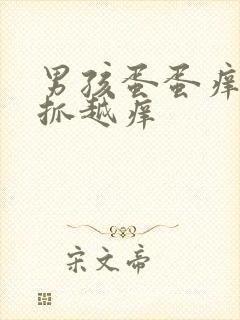 男孩蛋蛋痒
抓越痒
宋文帝